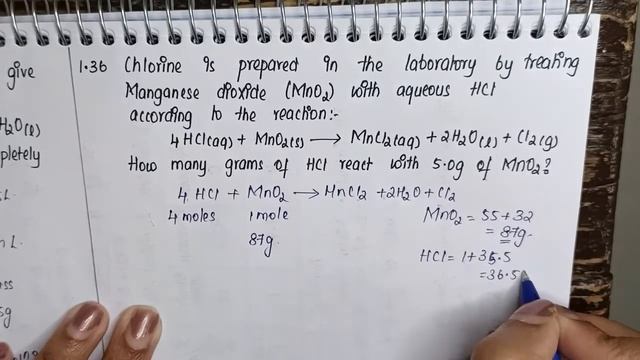 give
H2O(l)
pletely
L
n L.
ss
5g
1.36 Chlorine is prepared in the laboratory by treating
Manganese dioxide (MnO2) with aqueous HCl
according to the reaction:-
4HCl(aq) + MnO2(s) → MnCl2(aq) + 2H2O(l) + Cl2(g)
How many grams of HCl react with 5.0g of MnO2?
4 HCl + MnO2 → MnCl2 + 2H2O + Cl2
4 moles 1 mole
87g
MnO2 = 55 + 32
= 87g.
HCl = 1 + 35.5
= 36.5